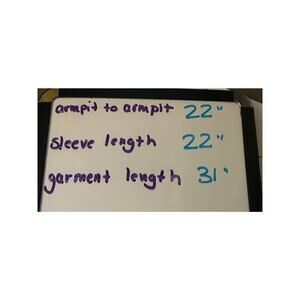 armpit to armpit 22"
sleeve length 22"
garment length 31"